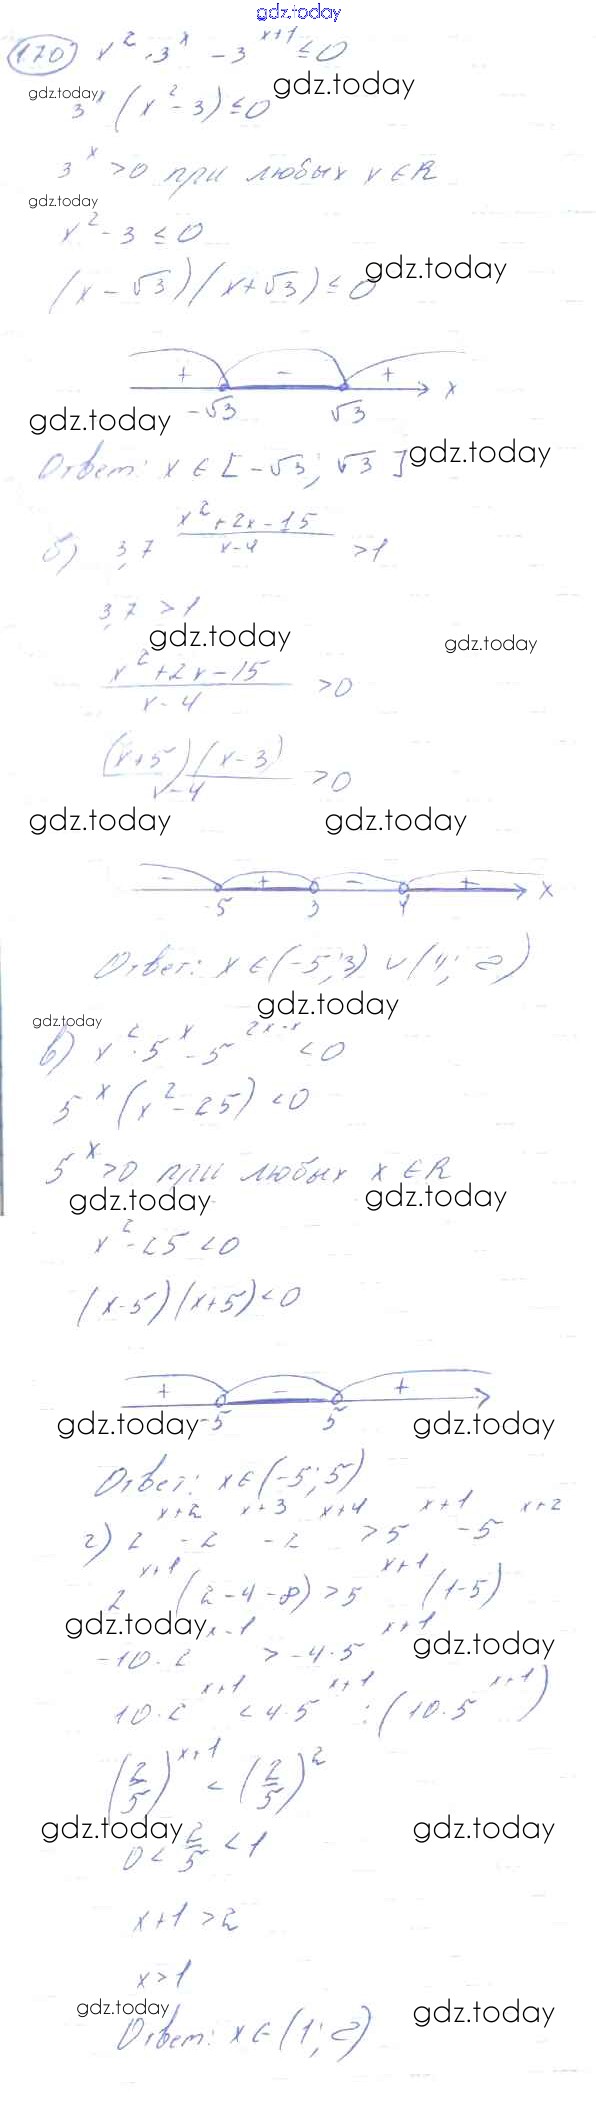 gdz.today
170) x² · 3ˣ - 3ˣ⁺¹ ≤ 0
gdz.today
gdz.today
3ˣ (x² - 3) ≤ 0
3ˣ > 0 при любых x ∈ R
gdz.today
x² - 3 ≤ 0
gdz.today
(x - √3)(x + √3) ≤ 0
+ - + x
-√3 √3
gdz.today
Ответ: x ∈ [-√3; √3]
gdz.today
б) 3,7^((x² + 2x - 15)/(x - 4)) > 1
3,7 > 1
gdz.today gdz.today
(x² + 2x - 15)/(x - 4) > 0
(x + 5)(x - 3)/(x - 4) > 0
gdz.today gdz.today
- + - + x
-5 3 4
Ответ: x ∈ (-5; 3) ∪ (4; ∞)
gdz.today
gdz.today
в) x² · 5ˣ - 5²⁺ˣ < 0
5ˣ (x² - 25) < 0
5ˣ > 0 при любых x ∈ R
gdz.today gdz.today
x² - 25 < 0
(x - 5)(x + 5) < 0
+ - +
gdz.today -5 5 gdz.today
Ответ: x ∈ (-5; 5)
г) 2ˣ⁺² - 2ˣ⁺³ - 2ˣ⁺⁴ > 5ˣ⁺¹ - 5ˣ⁺²
2ˣ⁺¹ (2 - 4 - 8) > 5ˣ⁺¹ (1 - 5)
gdz.today gdz.today
-10 · 2ˣ⁺¹ > -4 · 5ˣ⁺¹
10 · 2ˣ⁺¹ < 4 · 5ˣ⁺¹ : (10 · 5ˣ⁺¹)
(2/5)ˣ⁺¹ < (2/5)²
gdz.today gdz.today
0 < 2/5 < 1
x + 1 > 2
x > 1
gdz.today gdz.today
Ответ: x ∈ (1; ∞)